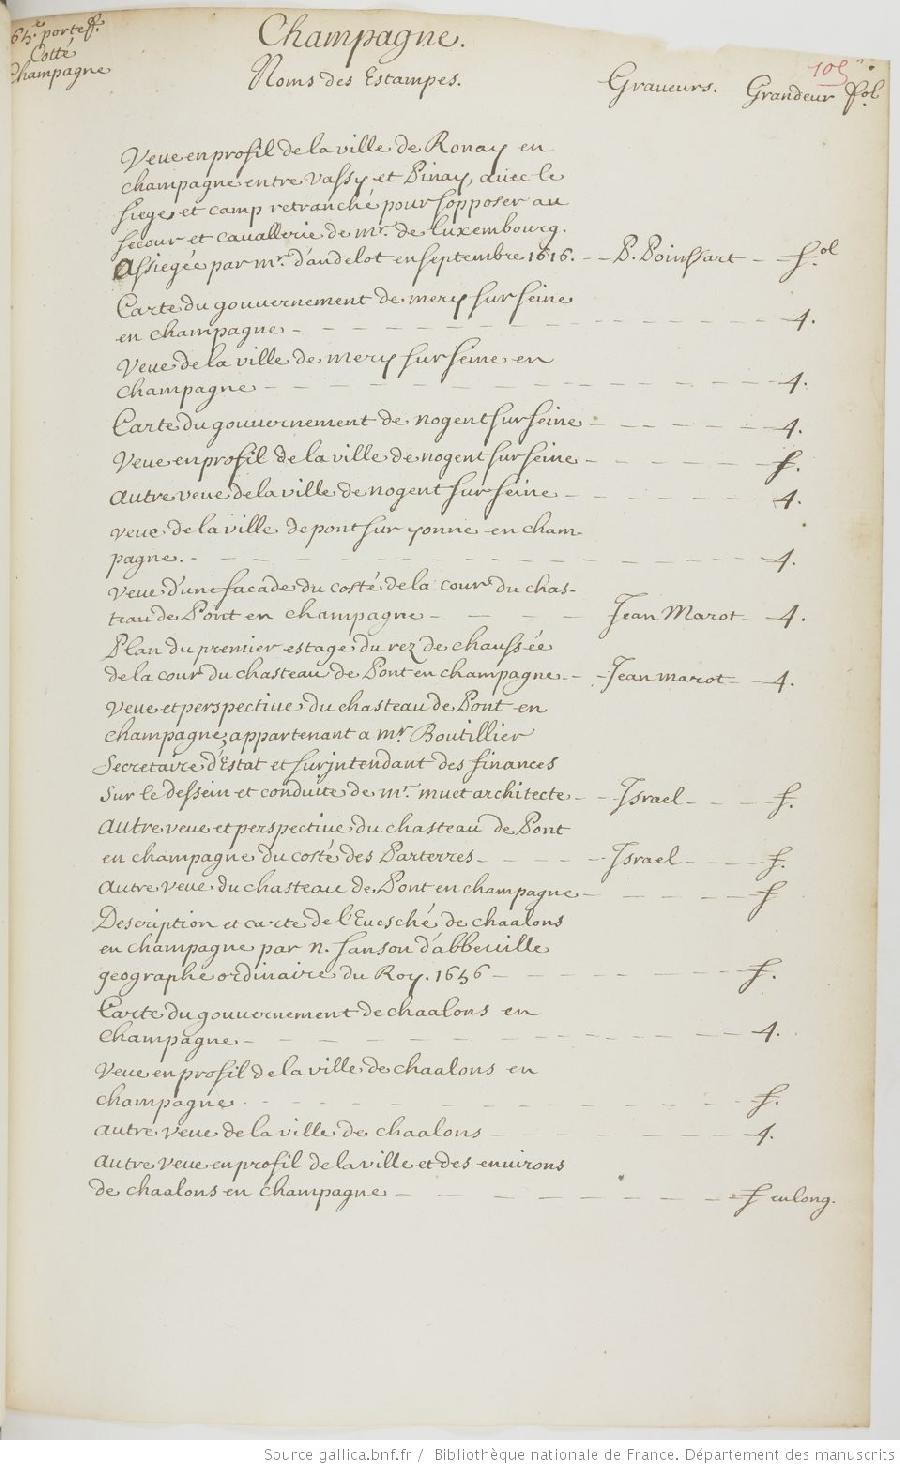 64e. portef.
Cotté
Champagne
Champagne.
105
Noms des Estampes. Graveurs. Grandeur fol.
Veue en profil de la ville de Ronay en
champagne entre vassy et Pinay, avec le
siege, et camp retranché pour s'opposer au
secour et cavallerie de mr. de luxembourg.
Assiegée par mr. d'andelot en septembre 1616. - P. Poinssart - fol
Carte du gouvernement de mery sur seine
en champagne - 4.
Veue de la ville de mery sur seine en
champagne - 4.
Carte du gouvernement de nogent sur seine - 4.
Veue en profil de la ville de nogent sur seine - f.
autre veue de la ville de nogent sur seine - 4.
veue de la ville de pont sur yonne en cham-
pagne. - 4.
Veue d'une facade du costé de la cour du chas-
teau de Pont en champagne - Jean Marot - 4.
Plan du premier estage du rez de chaussée
de la cour du chasteau de Pont en champagne - Jean marot - 4.
Veue et perspective du chasteau de Pont en
champagne, appartenant a mr. Boutillier
Secretaire d'Estat et surjntendant des finances
sur le dessein et conduite de mr. muet architecte - Jsrael - f.
autre veue et perspective du chasteau de Pont
en champagne du costé des Parterres - Jsrael - f.
autre veue du chasteau de Pont en champagne - f
Description et carte de l'Evesché de chaalons
en champagne par n. sanson d'abbeville
geographe ordinaire du Roy. 1656 - f.
Carte du gouvernement de chaalons en
champagne. - 4.
Veue en profil de la ville de chaalons en
champagne. - f.
autre veue de la ville de chaalons - 4.
autre veue en profil de la ville et des environs
de chaalons en champagne - f en long.
Source gallica.bnf.fr / Bibliothèque nationale de France. Département des manuscrits